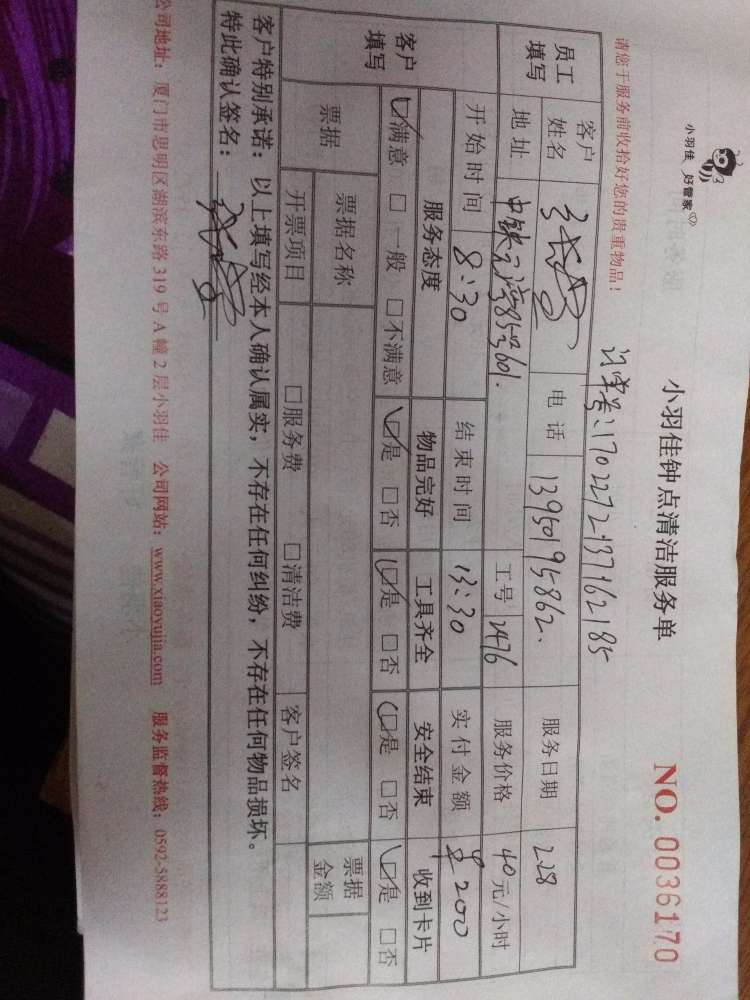 小羽佳 好管家
小羽佳钟点清洁服务单
NO. 0036170
请您于服务前收拾好您的贵重物品！
订单号：1702272137162185
员工填写
客户姓名
电话 13950195862.
服务日期 2.28
地址
85号601.
工号 2476
服务价格 40元/小时
开始时间 8:30
结束时间 13:30
实付金额 ¥200
客户填写
服务态度 物品完好 工具齐全 安全结束 收到卡片
☑满意 □一般 □不满意 ☑是 □否 ☑是 □否 ☑是 □否 ☑是 □否
票据
票据名称
票据金额
开票项目 □服务费 □清洁费 客户签名
客户特别承诺：以上填写经本人确认属实，不存在任何纠纷，不存在任何物品损坏。
特此确认签名：
公司地址：厦门市思明区湖滨东路319号A幢2层小羽佳 公司网站：www.xiaoyujia.com 服务监督热线：0592-5888123